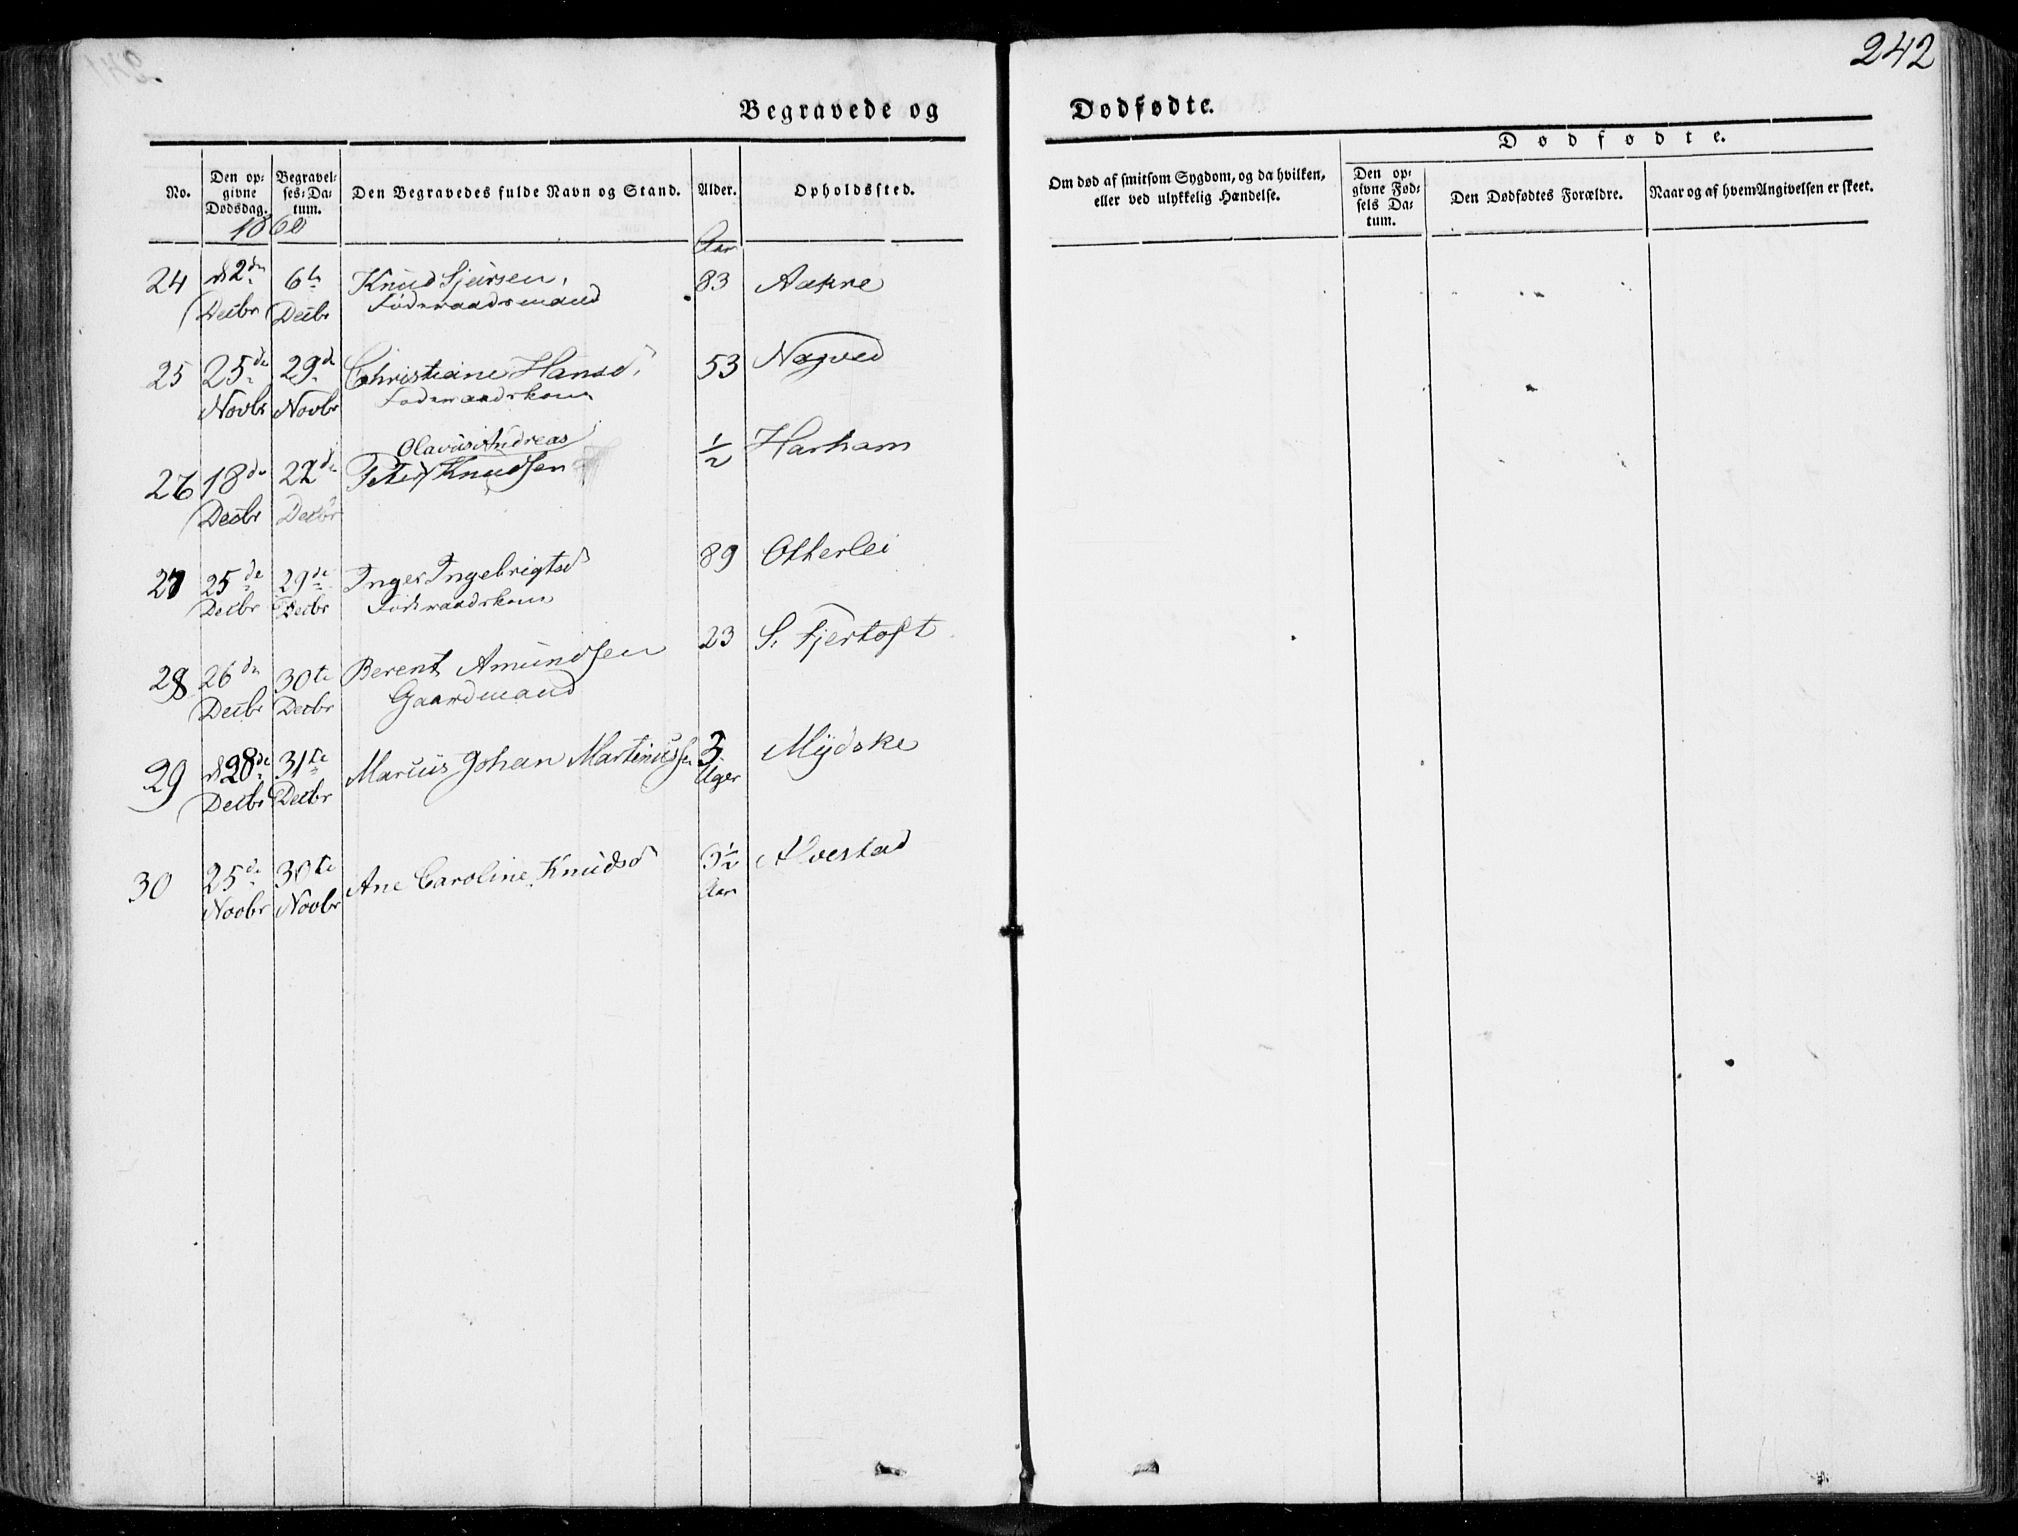 242
Begravede og Dødfødte.
Dødfødte.
No.
Den op-
givne
Dødsdag.
Begravel-
ses-Da-
tum.
Den Begravedes fulde Navn og Stand.
Alder.
Opholdssted.
Om død af smitsom Sygdom, og da hvilken,
eller ved ulykkelig Hændelse.
Den op-
givne Fød-
sels Da-
tum.
Den Dødfødtes Forældre.
Naar og af hvem Angivelsen er skeet.
1860
Aar
24 d 2den Decbr 6te Decbr Knud Sjursen, 83 Aakre
Føderaadsmand
25 25de Novbr 29de Novbr Christiane Hansd. 53 Nogved
Føderaadskone
Olavus Andreas
26 18de Decbr 22de Decbr Peter Knudsen 1/2 Harham
27 25de Decbr 29de Decbr Inger Ingebrigtsd 89 Otterlei
Føderaadskone
28 26de Decbr 30te Decbr Berent Amundsen 23 S. Fjertoft
Gaardmand
29 d 28de Decbr 31te Decbr Marius Johan Martinussen 3 Uger Mydske
30 25de Novbr 30te Novbr Ane Caroline Knudsd 3 1/2 Aar Alvestad